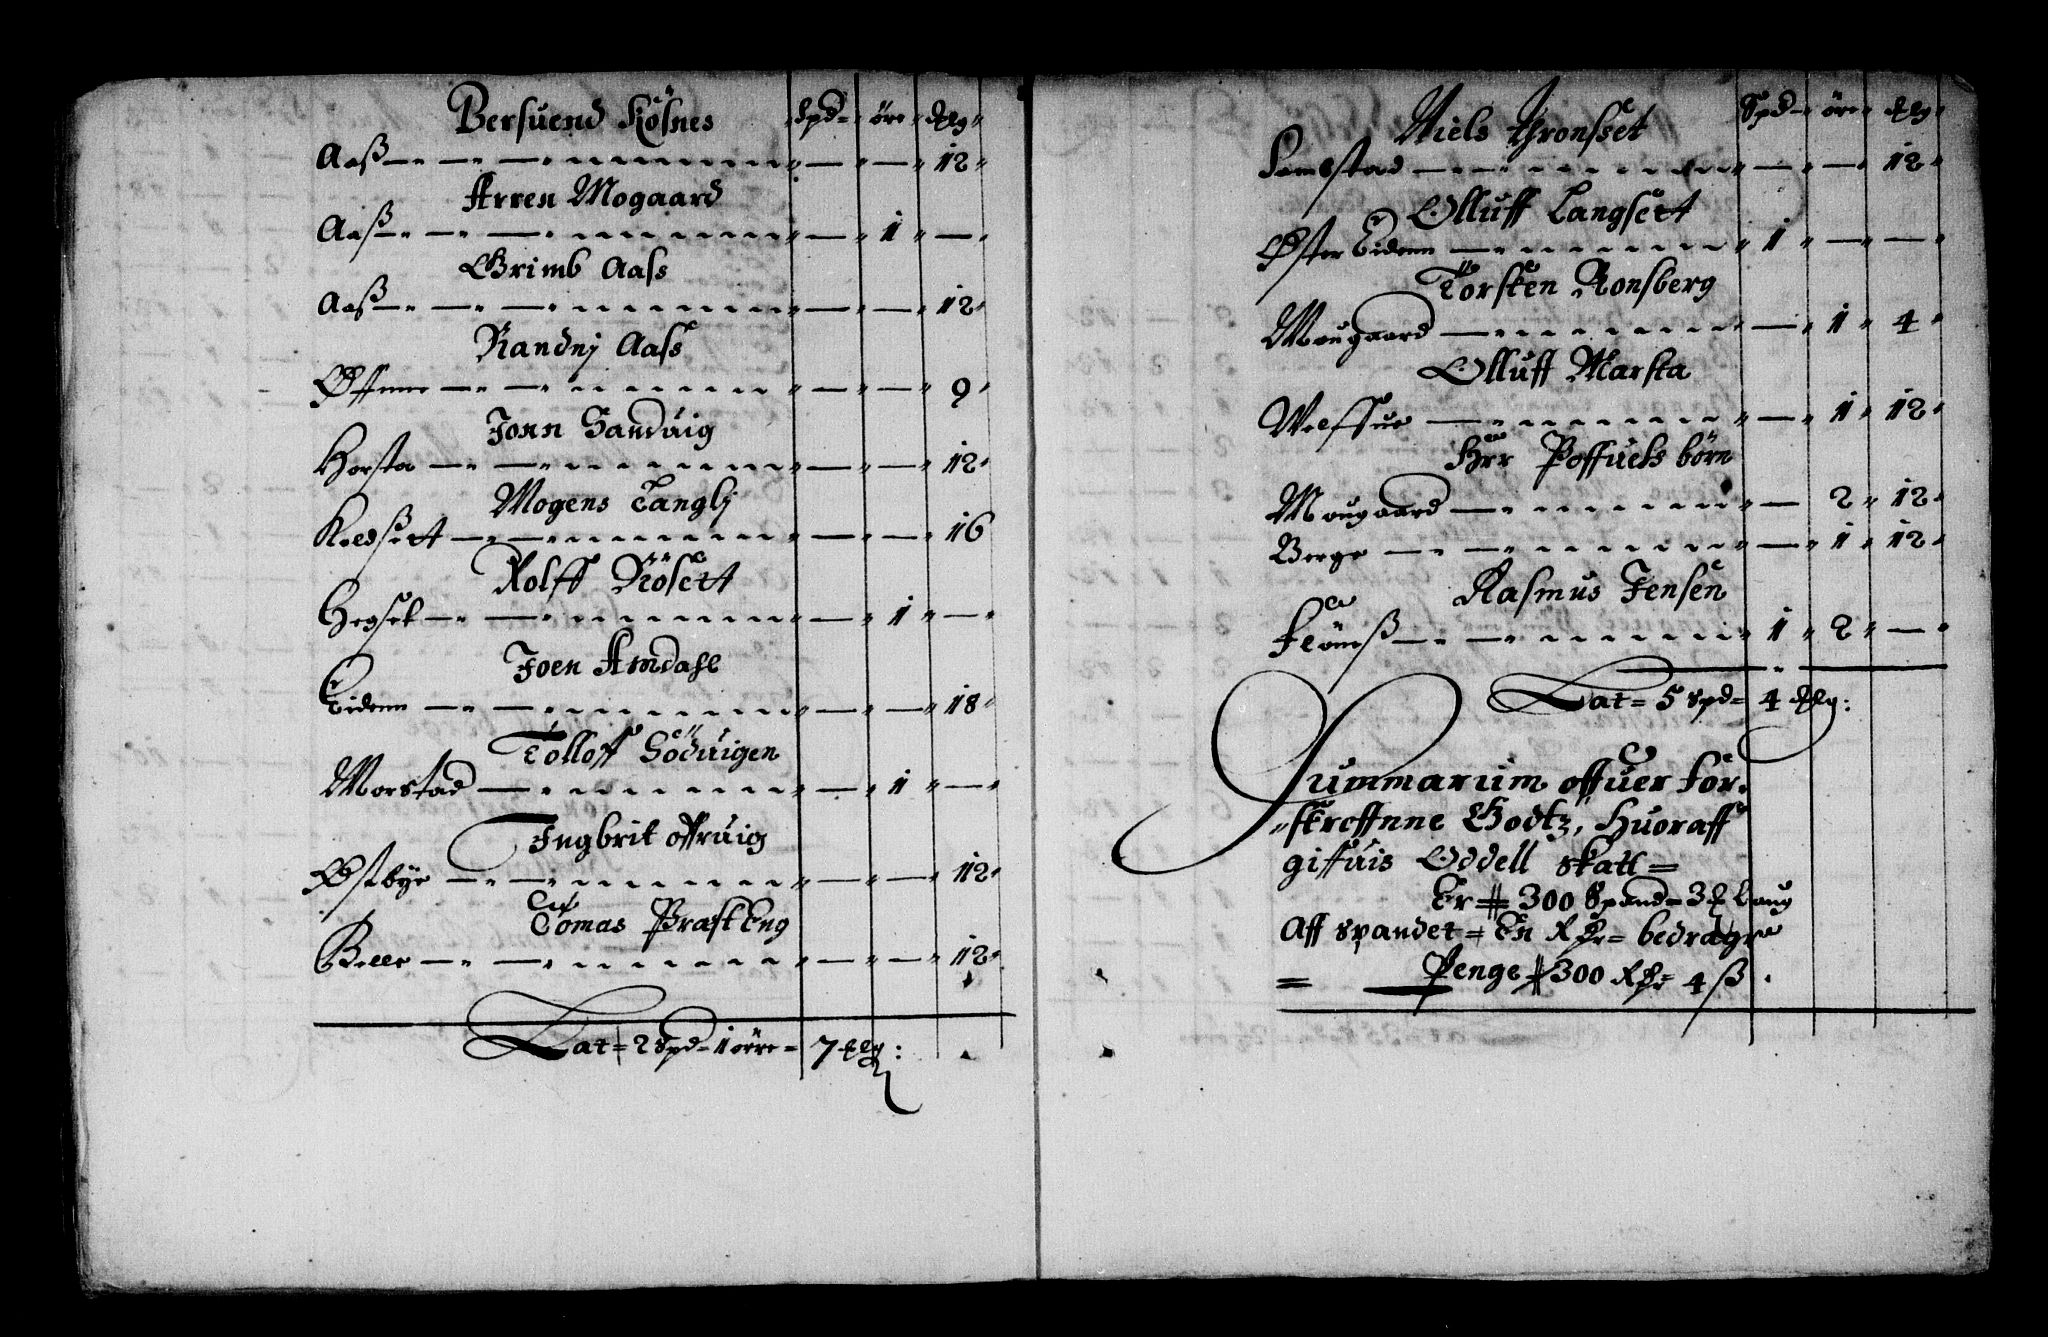 Bersuend Kösnes Spd= öre Mlg
Aaß — — — 12
Arren Mogaard
Aaß — — 1 —
Grimb Aass
Aaß — — — 12
Randnj Aass
Øffnne — — — 9
Jonn Sanduig
Horsta — — — 12
Mogens Langlj
Kieldsett — — — 16
Rolff Rösett
Hegset — — 1 —
Joen Amdahl
Eidenn — — — 18
Tolloff Söduigen
Morstad — — 1 —
Jngbrit offruig
Østbye — — — 12
Tomas Præst Eng
Kelle — — — 12
Lat= 2 Spd= 1 öre= 7 Mlg:
Niels thronsset Spd= öre Mlg
stad — — — 12
Olluff Langsett
Øster Eidenn — 1 — —
Torsten Ronsberg
Mougaard — — 1 4
Olluff Marsta
— — 1 12
Hrr Poffuels börn
Mougaard — — 2 12
Berge — — 1 12
Rasmus Jensen
Flömß — 1 2 —
Lat= 5 Spd= 4 Mlg:
Summarum offuer for=
skreffnne Godtz, Huoraff
giffuis Oddell skatt=
Er 300 Spand= 3 Laug
Aff spandet= En Rdr= bedragre
= Penge 300 Rdr= 4 ß